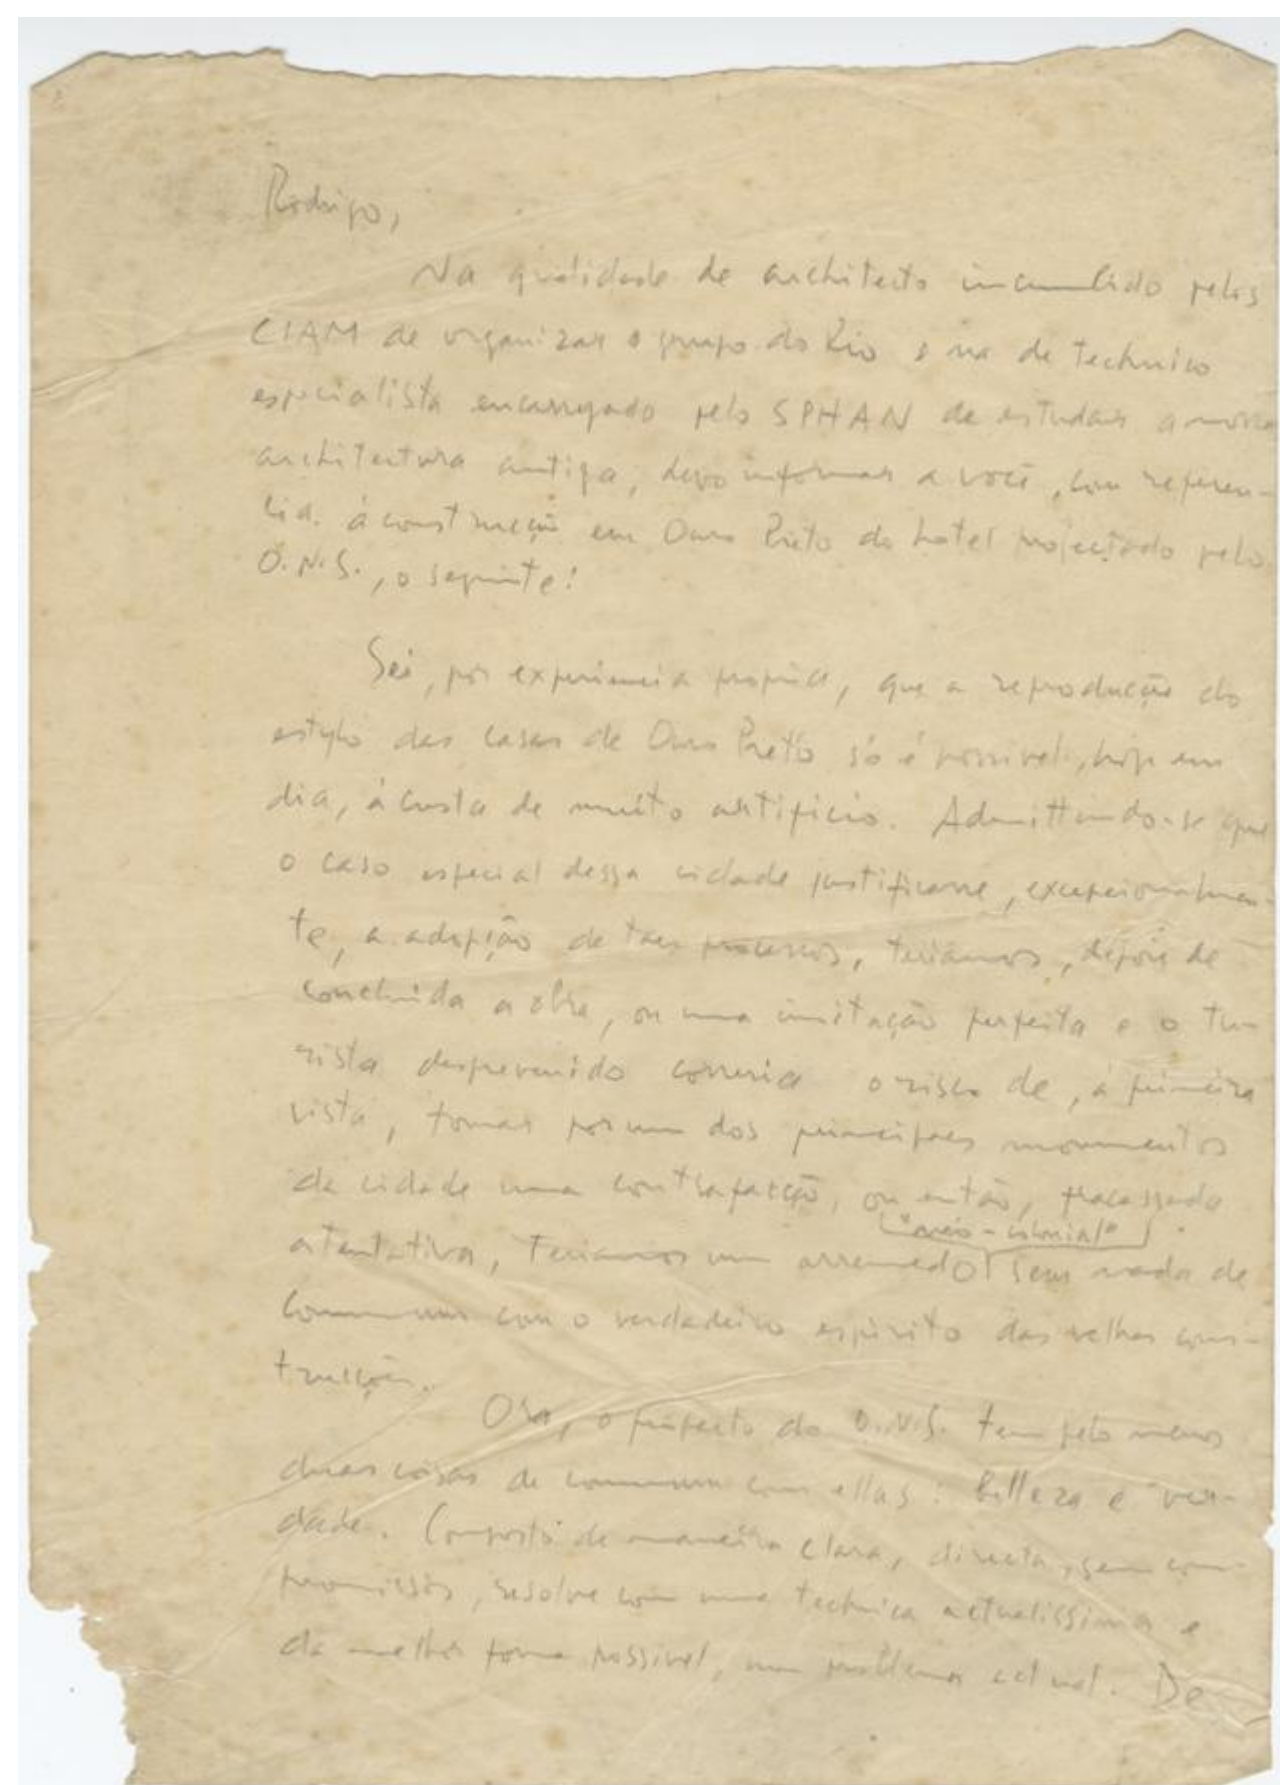 Rodrigo,
Na qualidade de architecto incumbido pelos
CIAM de organizar o grupo do Rio e na de technico
especialista encarregado pelo SPHAN de estudar a nossa
architectura antiga, devo informar a você, com referen-
cia á construcção em Ouro Preto do hotel projectado pelo
O.N.S., o seguinte:
Sei, por experiencia propria, que a reproducção do
estylo das casas de Ouro Preto só é possivel, hoje em
dia, á custa de muito artificio. Admittindo-se que
o caso especial dessa cidade justificasse, excepcionalmen-
te, a adopção de taes processos, teriamos, depois de
concluida a obra, ou uma imitação perfeita e o tu-
rista desprevenido correria o risco de, á primeira
vista, tomar por um dos principaes monumentos
da cidade uma contrafacção, ou então, fracassada
"neo-colonial"
a tentativa, teriamos um arremedo sem nada de
commum com o verdadeiro espirito das velhas cons-
trucções.
Ora, o projecto do O.N.S. tem pelo menos
duas coisas de commum com ellas: belleza e ver-
dade. Composto de maneira clara, directa, sem com-
promissos, resolve com uma technica actualissima e
da melhor forma possivel, um problema actual. De